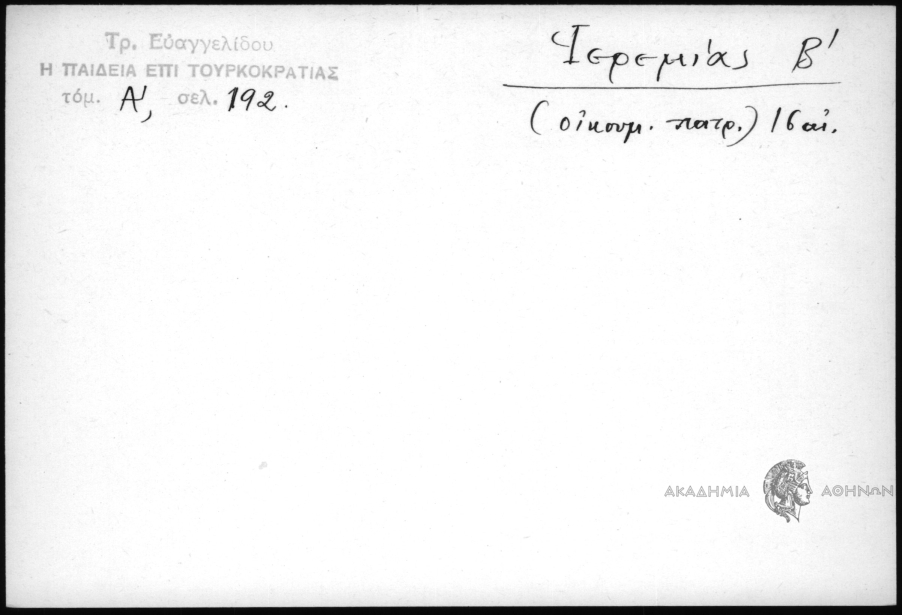 Τρ. Εὐαγγελίδου
Η ΠΑΙΔΕΙΑ ΕΠΙ ΤΟΥΡΚΟΚΡΑΤΙΑΣ
τόμ. Α', σελ. 192.
Ἱερεμίας Β'
(οἰκουμ. πατρ.) 16 αἰ.
ΑΚΑΔΗΜΙΑ ΑΘΗΝΩΝ